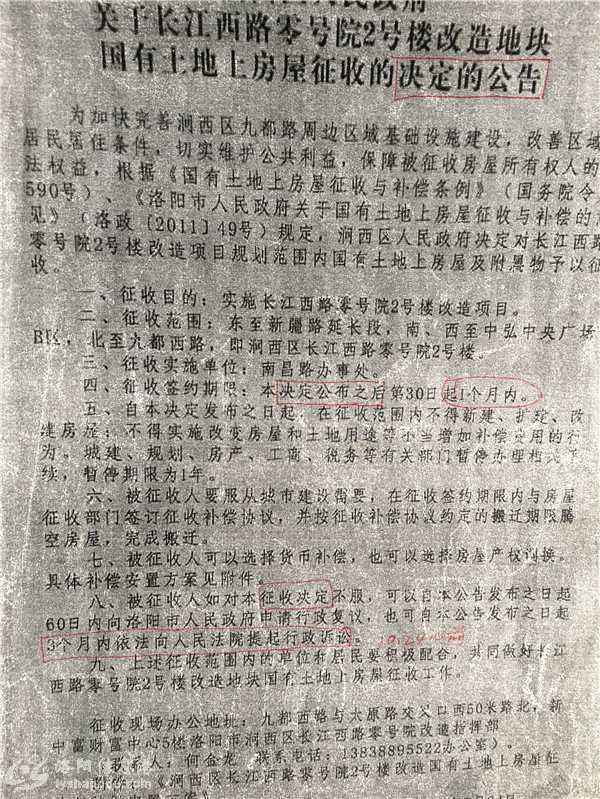 关于长江西路零号院2号楼改造地块
国有土地上房屋征收的决定的公告
为加快完善涧西区九都路周边区域基础设施建设，改善区域
居民居住条件，切实维护公共利益，保障被征收房屋所有权人的
法权益，根据《国有土地上房屋征收与补偿条例》（国务院令
590号）、《洛阳市人民政府关于国有土地上房屋征收与补偿的
见》（洛政〔2011〕49号）规定，涧西区人民政府决定对长江西路
零号院2号楼改造项目规划范围内国有土地上房屋及附属物予以征
收。
一、征收目的：实施长江西路零号院2号楼改造项目。
二、征收范围：东至新疆路延长段，南、西至中弘中央广场
B区，北至九都西路，即涧西区长江西路零号院2号楼。
三、征收实施单位：南昌路办事处。
四、征收签约期限：本决定公布之后第30日起1个月内。
五、自本决定发布之日起，在征收范围内不得新建、扩建、改
建房屋；不得实施改变房屋和土地用途等不当增加补偿费用的行
为。城建、规划、房产、工商、税务等有关部门暂停办理相关手
续，暂停期限为1年。
六、被征收人要服从城市建设需要，在征收签约期限内与房屋
征收部门签订征收补偿协议，并按征收补偿协议约定的搬迁期限腾
空房屋，完成搬迁。
七、被征收人可以选择货币补偿，也可以选择房屋产权调换。
具体补偿安置方案见附件。
八、被征收人如对本征收决定不服，可以自本公告发布之日起
60日内向洛阳市人民政府申请行政复议，也可自本公告发布之日起
3个月内依法向人民法院提起行政诉讼。
九、上述征收范围内的单位和居民要积极配合，共同做好长江
西路零号院2号楼改造地块国有土地上房屋征收工作。
征收现场办公地址：九都西路与太原路交叉口西50米路北，新
中富财富中心5楼洛阳市涧西区长江西路零号院改造指挥部
联系人：何金龙 联系电话：13838895522办公室）。
《涧西区长江西路零号院2号楼改造国有土地上房屋征